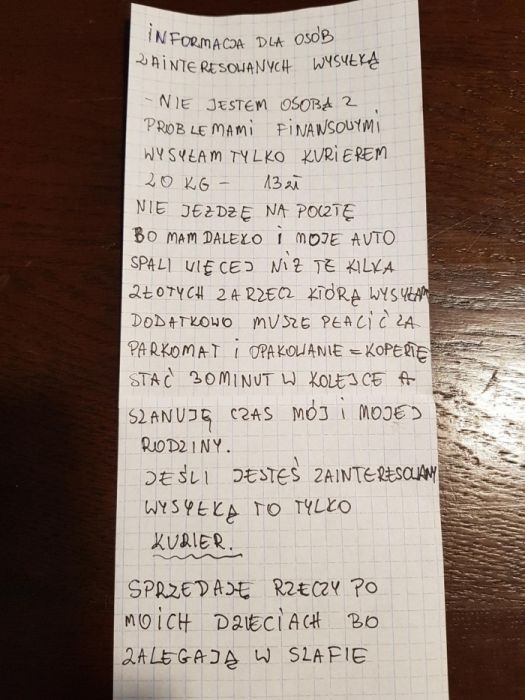 INFORMACJA DLA OSÓB
ZAINTERESOWANYCH WYSYŁKĄ
- NIE JESTEM OSOBĄ Z
PROBLEMAMI FINANSOWYMI
WYSYŁAM TYLKO KURIEREM
20 KG - 13 zł
NIE JEŻDŻĘ NA POCZTĘ
BO MAM DALEKO I MOJE AUTO
SPALI WIĘCEJ NIŻ TE KILKA
ZŁOTYCH ZA RZECZ KTÓRĄ WYSYŁAM
DODATKOWO MUSZĘ PŁACIĆ ZA
PARKOMAT I OPAKOWANIE = KOPERTĘ
STAĆ 30 MINUT W KOLEJCE A
SZANUJĘ CZAS MÓJ I MOJEJ
RODZINY.
JEŚLI JESTEŚ ZAINTERESOWANY
WYSYŁKĄ TO TYLKO
KURIER.
SPRZEDAJĘ RZECZY PO
MOICH DZIECIACH BO
ZALEGAJĄ W SZAFIE